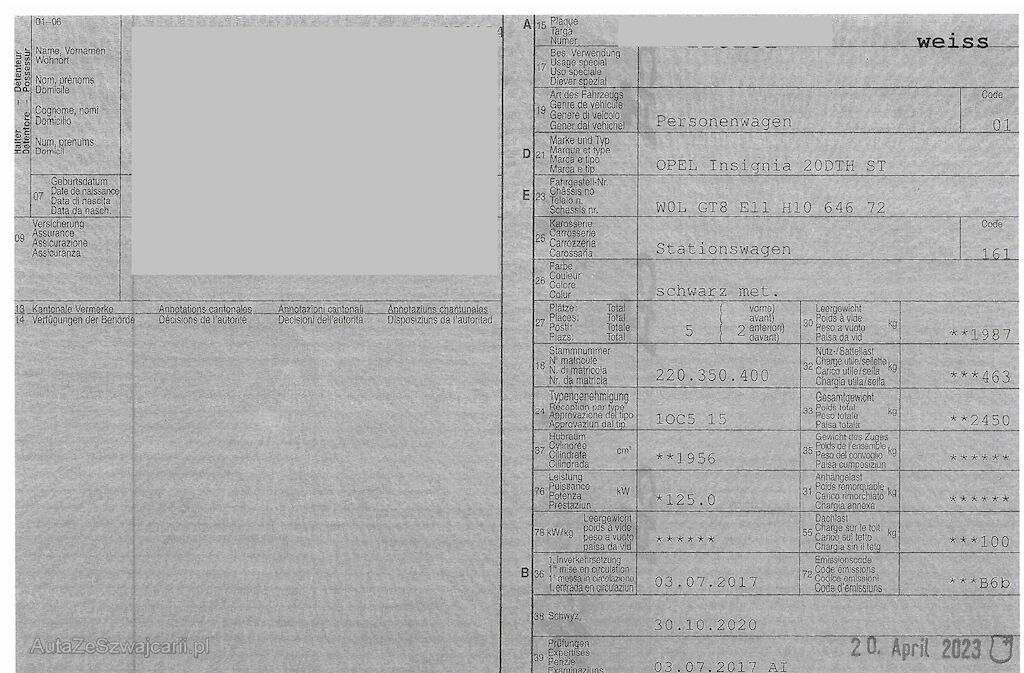 01–06
Halter – Détenteur
Detentore – Possessur
Name, Vornamen
Wohnort
Nom, prénoms
Domicile
Cognome, nomi
Domicilio
Num, prenums
Domicil
07
Geburtsdatum
Date de naissance
Data di nascita
Data da nasch.
09
Versicherung
Assurance
Assicurazione
Assicuranza
13 Kantonale Vermerke Annotations cantonales Annotazioni cantonali Annotaziuns chantunalas
14 Verfügungen der Behörde Décisions de l'autorité Decisioni dell'autorità Disposiziuns da l'autoritad
A 15
Plaque
Targa
Numer
weiss
17
Bes. Verwendung
Usage spécial
Uso speciale
Diever spezial
19
Art des Fahrzeugs
Genre de véhicule
Genere di veicolo
Gener dal vehichel
Personenwagen
Code
01
D 21
Marke und Typ
Marque et type
Marca e tipo
Marca e tip
OPEL Insignia 20DTH ST
E 23
Fahrgestell-Nr.
Châssis no
Telaio n.
Schassis nr.
W0L GT8 E11 H10 646 72
25
Karosserie
Carrosserie
Carrozzeria
Carossaria
Stationswagen
Code
161
26
Farbe
Couleur
Colore
Colur
schwarz met.
27
Plätze: Total vorne)
Places: Total avant)
Posti: Totale anteriori)
Plazs: Total davant)
5 ( 2
30
Leergewicht
Poids à vide
Peso a vuoto
Paisa da vid
kg
**1987
18
Stammnummer
N° matricule
N. di matricola
Nr. da matricla
220.350.400
32
Nutz-/Sattellast
Charge utile/sellette
Carico utile/sella
Chargia utila/sella
kg
***463
24
Typengenehmigung
Réception par type
Approvazione del tipo
Approvaziun dal tip
1OC5 15
33
Gesamtgewicht
Poids total
Peso totale
Paisa totala
kg
**2450
37
Hubraum
Cylindrée
Cilindrata
Cilindrada
cm³
**1956
35
Gewicht des Zuges
Poids de l'ensemble
Peso del convoglio
Paisa cumposiziun
kg
******
76
Leistung
Puissance
Potenza
Prestaziun
kW
*125.0
31
Anhängelast
Poids remorquable
Carico rimorchiato
Chargia annexa
kg
******
78 kW/kg
Leergewicht
poids à vide
peso a vuoto
paisa da vid
******
55
Dachlast
Charge sur le toit
Carico sul tetto
Chargia sin il tetg
kg
***100
B 36
1. Inverkehrsetzung
1re mise en circulation
1a messa in circolazione
1. entrada en circulaziun
03.07.2017
72
Emissionscode
Code émissions
Codice emissioni
Code d'emissiuns
***B6b
38 Schwyz,
30.10.2020
39
Prüfungen
Expertises
Perizie
Examinaziuns
03.07.2017 AI
20. April 2023
AutaZeSzwajcarii.pl